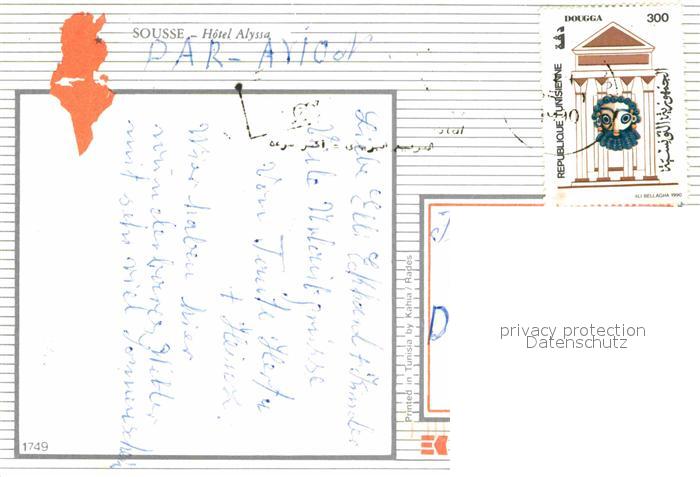 SOUSSE – Hôtel Alyssa
PAR-AVION
DOUGGA
300
دقة
REPUBLIQUE TUNISIENNE
الجمهورية التونسية
ALI BELLAGHA 1990
Liebe Elli
Viele Urlaubsgrüsse
von Tante Herta
+ Heinz.
Wir haben hier
wunderbares Wetter
mit sehr viel Sonnenschein
Printed in Tunisia by Kahia / Rades
D
1749
privacy protection
Datenschutz